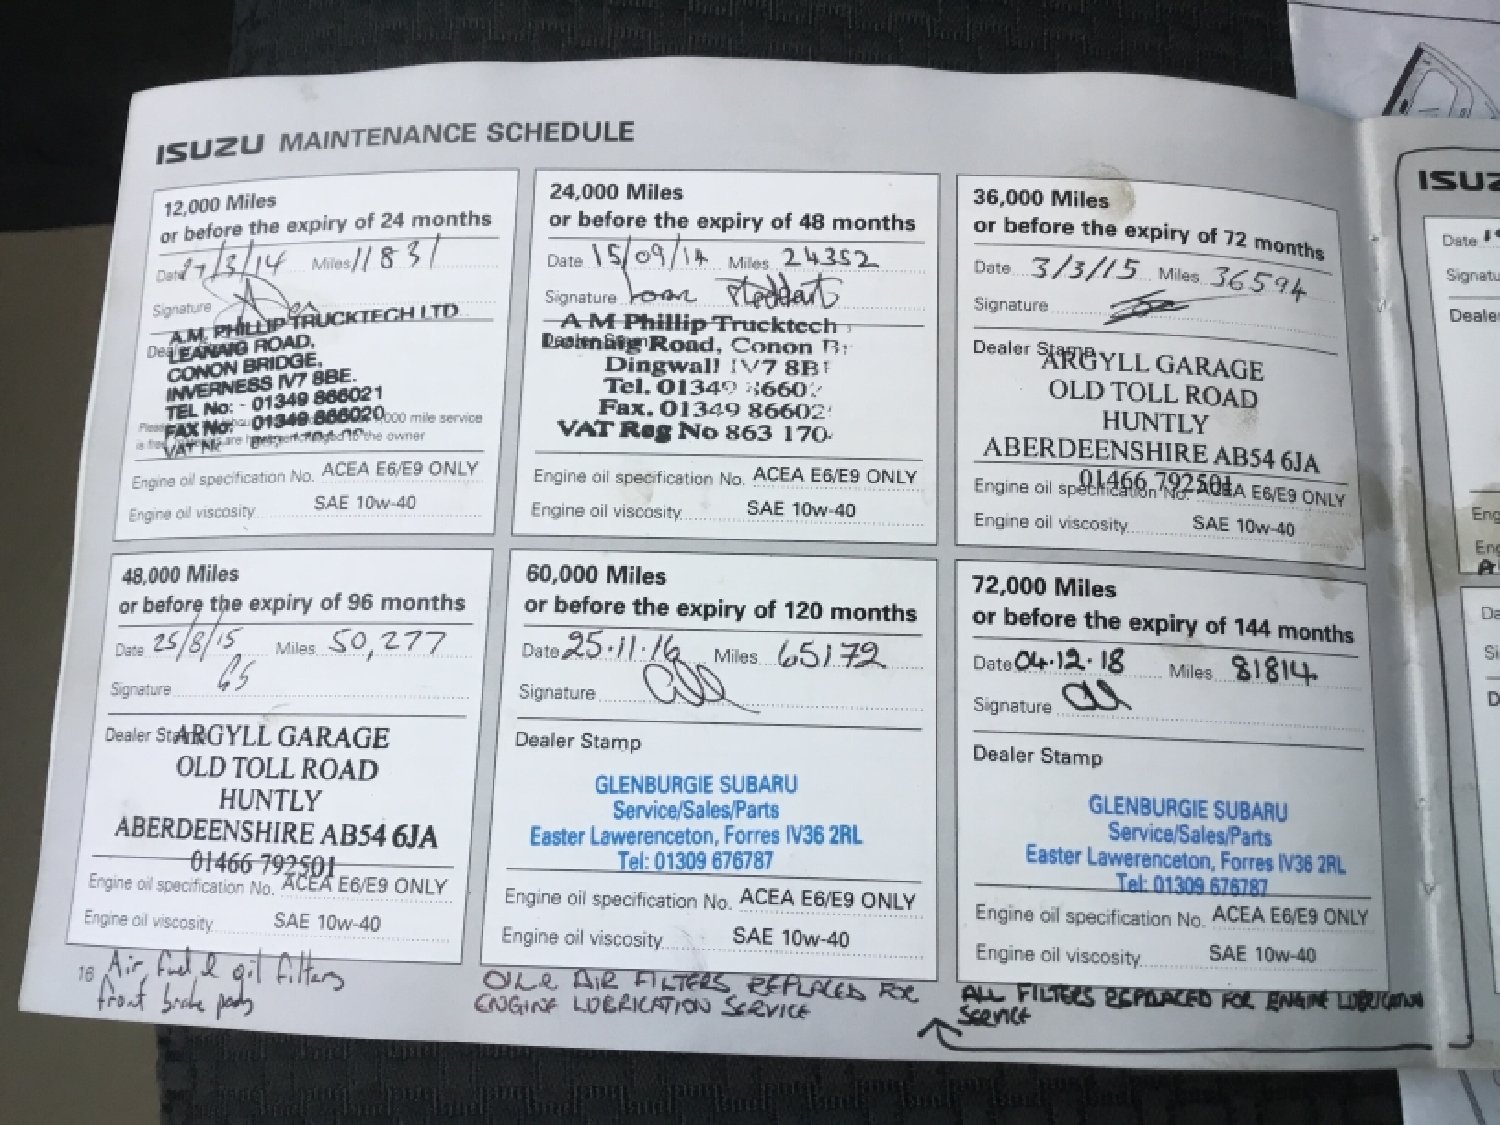 ISUZU MAINTENANCE SCHEDULE
12,000 Miles
or before the expiry of 24 months
Date 27/3/14 Miles 11831
Signature
A.M. PHILLIP TRUCKTECH LTD
LEANAIG ROAD,
CONON BRIDGE,
INVERNESS IV7 8BE.
TEL No: - 01349 866021
FAX No: 01349 866020
,000 mile service
to the owner
VAT Nr.
Engine oil specification No. ACEA E6/E9 ONLY
Engine oil viscosity SAE 10w-40
24,000 Miles
or before the expiry of 48 months
Date 15/09/14 Miles 24352
Signature
A M Phillip Trucktech
Road, Conon Br
Dingwall IV7 8B
Tel. 01349 8660
Fax. 01349 86602
VAT Reg No 863 170
Engine oil specification No. ACEA E6/E9 ONLY
Engine oil viscosity SAE 10w-40
36,000 Miles
or before the expiry of 72 months
Date 3/3/15 Miles 36594
Signature
Dealer Stamp
ARGYLL GARAGE
OLD TOLL ROAD
HUNTLY
ABERDEENSHIRE AB54 6JA
01466 792501
Engine oil specification No. ACEA E6/E9 ONLY
Engine oil viscosity SAE 10w-40
48,000 Miles
or before the expiry of 96 months
Date 25/8/15 Miles 50,277
Signature
Dealer Stamp
ARGYLL GARAGE
OLD TOLL ROAD
HUNTLY
ABERDEENSHIRE AB54 6JA
01466 792501
Engine oil specification No. ACEA E6/E9 ONLY
Engine oil viscosity SAE 10w-40
16 Air, fuel & oil filters
front brake pads
60,000 Miles
or before the expiry of 120 months
Date 25.11.16 Miles 65172
Signature
Dealer Stamp
GLENBURGIE SUBARU
Service/Sales/Parts
Easter Lawerenceton, Forres IV36 2RL
Tel: 01309 676787
Engine oil specification No. ACEA E6/E9 ONLY
Engine oil viscosity SAE 10w-40
OIL & AIR FILTERS REPLACED FOR
ENGINE LUBRICATION SERVICE
72,000 Miles
or before the expiry of 144 months
Date 04.12.18 Miles 81814
Signature
Dealer Stamp
GLENBURGIE SUBARU
Service/Sales/Parts
Easter Lawerenceton, Forres IV36 2RL
Tel: 01309 676787
Engine oil specification No. ACEA E6/E9 ONLY
Engine oil viscosity SAE 10w-40
ALL FILTERS REPLACED FOR ENGINE LUBRICATION
SERVICE
ISUZ
Date
Signatu
Dealer
Eng
Eng
Da
Si
D